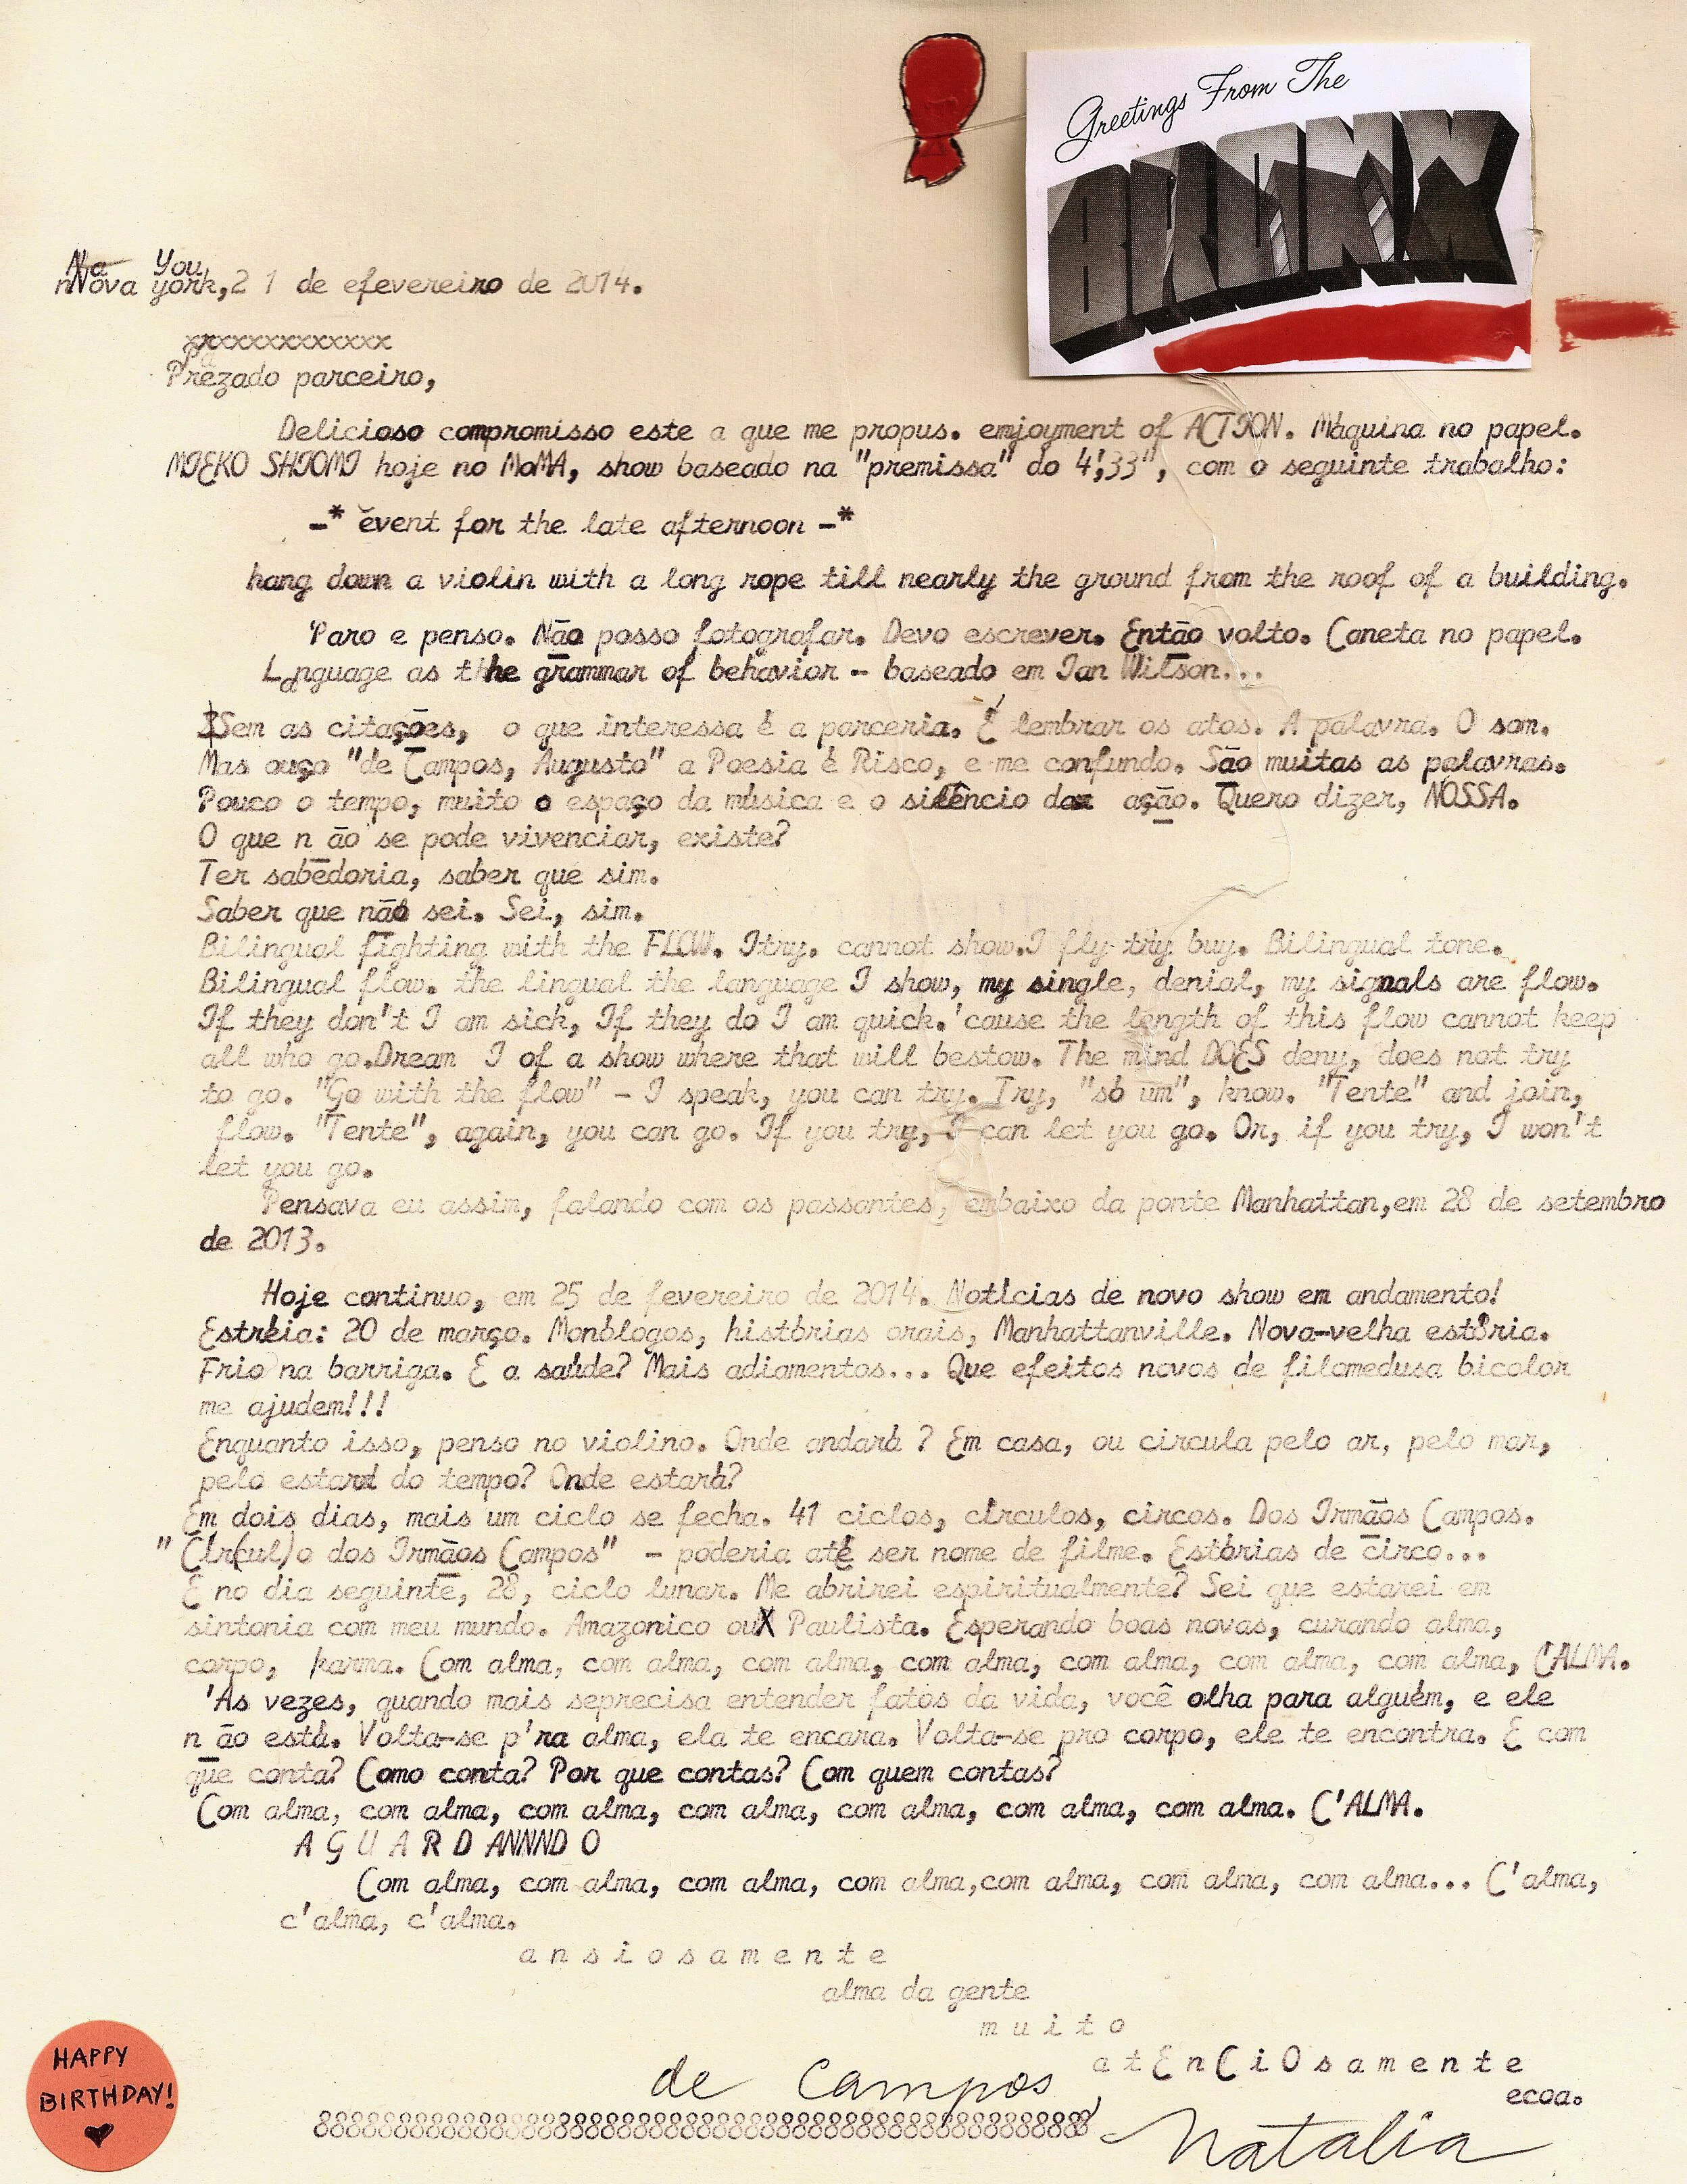 Greetings From The
BRONX
Na You
nNova york,2 1 de efevereiro de 2014.
xxxxxxxxxxxxxx
Pa
Prezado parceiro,
Delicioso compromisso este a que me propus. emjoyment of ACTION. Máquina no papel.
MIEKO SHIOMI hoje no MoMA, show baseado na "premissa" do 4',33", com o seguinte trabalho:
-* event for the late afternoon -*
hang down a violin with a long rope till nearly the ground from the roof of a building.
Paro e penso. Não posso fotografar. Devo escrever. Então volto. Caneta no papel.
Language as thhe grammar of behavior - baseado em Ian Wilson...
Sem as citações, o que interessa é a parceria. É lembrar os atos. A palavra. O som.
Mas ouço "de Campos, Augusto" a Poesia é Risco, e me confundo. São muitas as palavras.
Pouco o tempo, muito o espaço da música e o silêncio da ação. Quero dizer, NOSSA.
O que n ão se pode vivenciar, existe?
Ter sabedoria, saber que sim.
Saber que não sei. Sei, sim.
Bilingual fighting with the FLOW. Itry. cannot show.I fly try buy. Bilingual tone.
Bilingual flow. the lingual the language I show, my single, denial, my signals are flow.
If they don't I am sick, If they do I am quick.'cause the length of this flow cannot keep
all who go.Dream I of a show where that will bestow. The mind DOES deny, does not try
to go. "Go with the flow" - I speak, you can try. Try, "só um", know. "Tente" and join,
flow. "Tente", again, you can go. If you try, I can let you go. Or, if you try, I won't
let you go.
Pensava eu assim, falando com os passantes, embaixo da ponte Manhattan,em 28 de setembro
de 2013.
Hoje continuo, em 25 de fevereiro de 2014. Notícias de novo show em andamento!
Estréia: 20 de março. Monólogos, histórias orais, Manhattanville. Nova-velha estória.
Frio na barriga. E a saúde? Mais adiamentos... Que efeitos novos de filomedusa bicolor
me ajudem!!!
Enquanto isso, penso no violino. Onde andará ? Em casa, ou circula pelo ar, pelo mar,
pelo estard do tempo? Onde estará?
Em dois dias, mais um ciclo se fecha. 41 ciclos, círculos, circos. Dos Irmãos Campos.
" Cír(cul)o dos Irmãos Campos" - poderia até ser nome de filme. Estórias de circo...
E no dia seguinte, 28, ciclo lunar. Me abrirei espiritualmente? Sei que estarei em
sintonia com meu mundo. Amazonico ouX Paulista. Esperando boas novas, curando alma,
corpo, karma. Com alma, com alma, com alma, com alma, com alma, com alma, com alma, CALMA.
'As vezes, quando mais seprecisa entender fatos da vida, você olha para alguém, e ele
n ão está. Volta-se p'ra alma, ela te encara. Volta-se pro corpo, ele te encontra. E com
que conta? Como conta? Por que contas? Com quem contas?
Com alma, com alma, com alma, com alma, com alma, com alma, com alma. C'ALMA.
A G U A R D ANNND O
Com alma, com alma, com alma, com alma,com alma, com alma, com alma... C'alma,
c'alma, c'alma.
a n s i o s a m e n t e
alma da gente
m u i t o
a t E n C i O s a m e n t e
ecoa.
de Campos,
Natalia
HAPPY
BIRTHDAY!